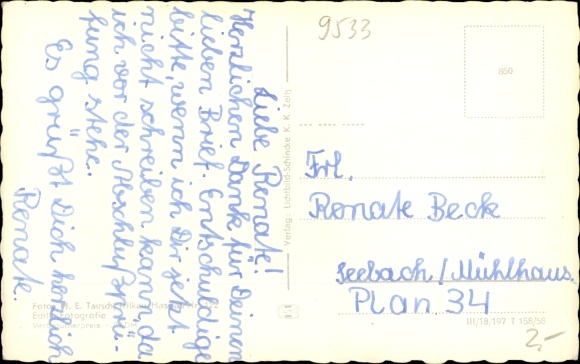 Liebe Renate!
Herzlichen Dank für Deinen
lieben Brief. Entschuldige
bitte, wenn ich Dir jetzt
nicht schreiben kann, da
ich vor der Abschlußprü-
fung stehe.
Es grüßt Dich herzlich
Renate.
Echte Fotografie
Verlag: Lichtbild-Schincke K. K. Zeitz
9533
850
Frl.
Renate Beck
Seebach/Mühlhaus.
Plan 34
III/18/197 T 158/58
2,-